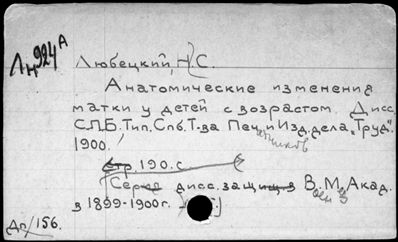 Лн924А
Любецкий, Н.С.
Анатомические изменения
матки у детей с возрастом. Дисс.
С.П.Б. Тип. Спб. Т-ва Печ. и Изд. дела "Труд".
1900.
стр. 190. с
Серия дисс. защищ в В.М. Акад.
в 1899-1900 г.
Дп/156.